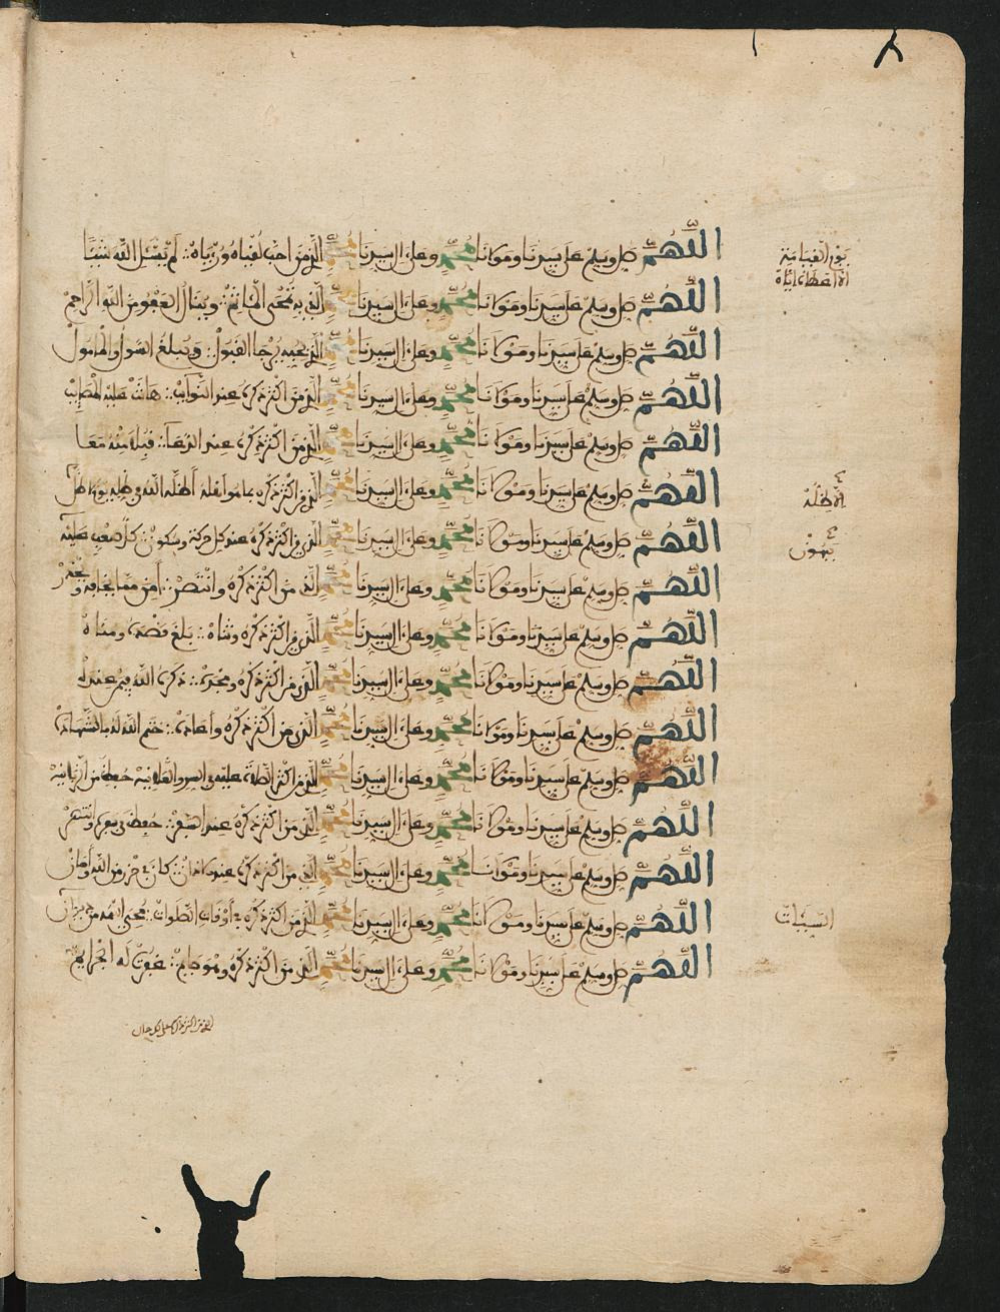 اللهم صل وسلم على سيدنا ومولانا محمد وعلى ءال سيدنا محمد الذي من احب لقياه ورؤياه ∴ لم يسئل الله شيئا
يوم القيامة
الا اعطاه اياه
اللهم صل وسلم على سيدنا ومولانا محمد وعلى ءال سيدنا محمد الذي به تمحى المئاثم ∴ وينال العفو من التواب الراحم
اللهم صل وسلم على سيدنا ومولانا محمد وعلى ءال سيدنا محمد الذي بحبه يرجا القبول ∴ ويبلغ السول والمامول
اللهم صل وسلم على سيدنا ومولانا محمد وعلى ءال سيدنا محمد الذي من اكثر ذكره عند النوايب ∴ هانت عليه المصايب
اللهم صل وسلم على سيدنا ومولانا محمد وعلى ءال سيدنا محمد الذي من اكثر ذكره عند الدعا ∴ قبل منه معا
اللهم صل وسلم على سيدنا ومولانا محمد وعلى ءال سيدنا محمد الذي من اكثر ذكره اظله الله في ظله يوم لا ظل
الا ظله
اللهم صل وسلم على سيدنا ومولانا محمد وعلى ءال سيدنا محمد الذي من اكثر ذكره عند كل حركة وسكون ∴ كل صعب عليه
يهون
اللهم صل وسلم على سيدنا ومولانا محمد وعلى ءال سيدنا محمد الذي من اكثر ذكره وانتصر ∴ امن مما يخافه ويحذر
اللهم صل وسلم على سيدنا ومولانا محمد وعلى ءال سيدنا محمد الذي من اكثر ذكره وثناه ∴ بلغ قصده ومناه
اللهم صل وسلم على سيدنا ومولانا محمد وعلى ءال سيدنا محمد الذي من اكثر ذكره ومجده ∴ ذكره الله فيمن عنده
اللهم صل وسلم على سيدنا ومولانا محمد وعلى ءال سيدنا محمد الذي من اكثر ذكره واعاده ∴ ختم الله له بالشهادة
اللهم صل وسلم على سيدنا ومولانا محمد وعلى ءال سيدنا محمد الذي من اكثر الصلاة عليه في السر والعلانية حفظ من الزبانية
اللهم صل وسلم على سيدنا ومولانا محمد وعلى ءال سيدنا محمد الذي من اكثر ذكره عند السفر ∴ حفظ
اللهم صل وسلم على سيدنا ومولانا محمد وعلى ءال سيدنا محمد الذي من اكثر ذكره عند الاذان ∴ كان في حرز من الله وامان
اللهم صل وسلم على سيدنا ومولانا محمد وعلى ءال سيدنا محمد الذي من اكثر ذكره في اوقات الصلوات ∴ محي
السيئات
اللهم صل وسلم على سيدنا ومولانا محمد وعلى ءال سيدنا محمد الذي من اكثر ذكره وهو صايم ∴ غفرت له الجرايم
الذي من اكثر ذكره